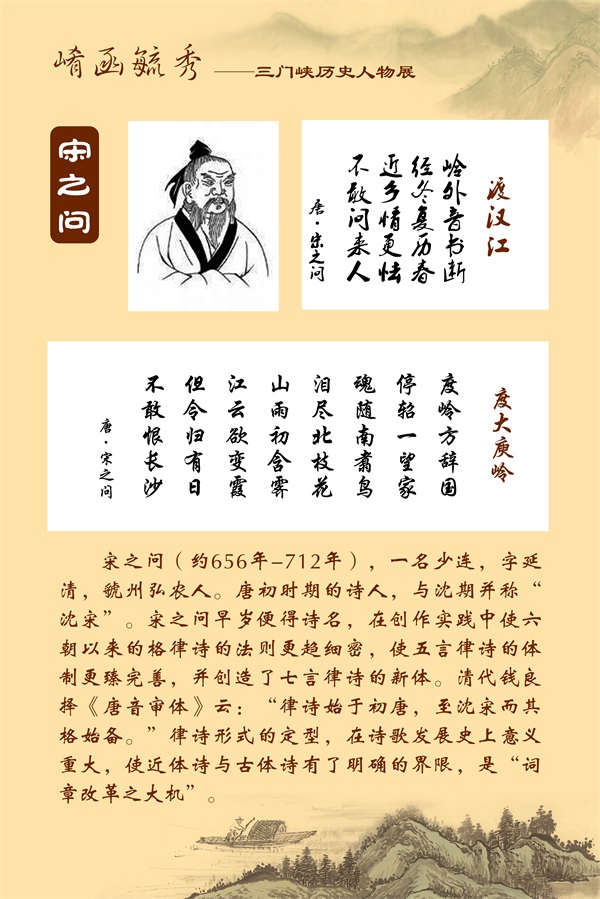 崤函毓秀 ——三门峡历史人物展
宋之问
渡汉江
岭外音书断
经冬复历春
近乡情更怯
不敢问来人
唐·宋之问
度大庾岭
度岭方辞国
停轺一望家
魂随南翥鸟
泪尽北枝花
山雨初含霁
江云欲变霞
但令归有日
不敢恨长沙
唐·宋之问
宋之问（约656年-712年），一名少连，字延
清，虢州弘农人。唐初时期的诗人，与沈期并称“
沈宋”。宋之问早岁便得诗名，在创作实践中使六
朝以来的格律诗的法则更趋细密，使五言律诗的体
制更臻完善，并创造了七言律诗的新体。清代钱良
择《唐音审体》云：“律诗始于初唐，至沈宋而其
格始备。”律诗形式的定型，在诗歌发展史上意义
重大，使近体诗与古体诗有了明确的界限，是“词
章改革之大机”。